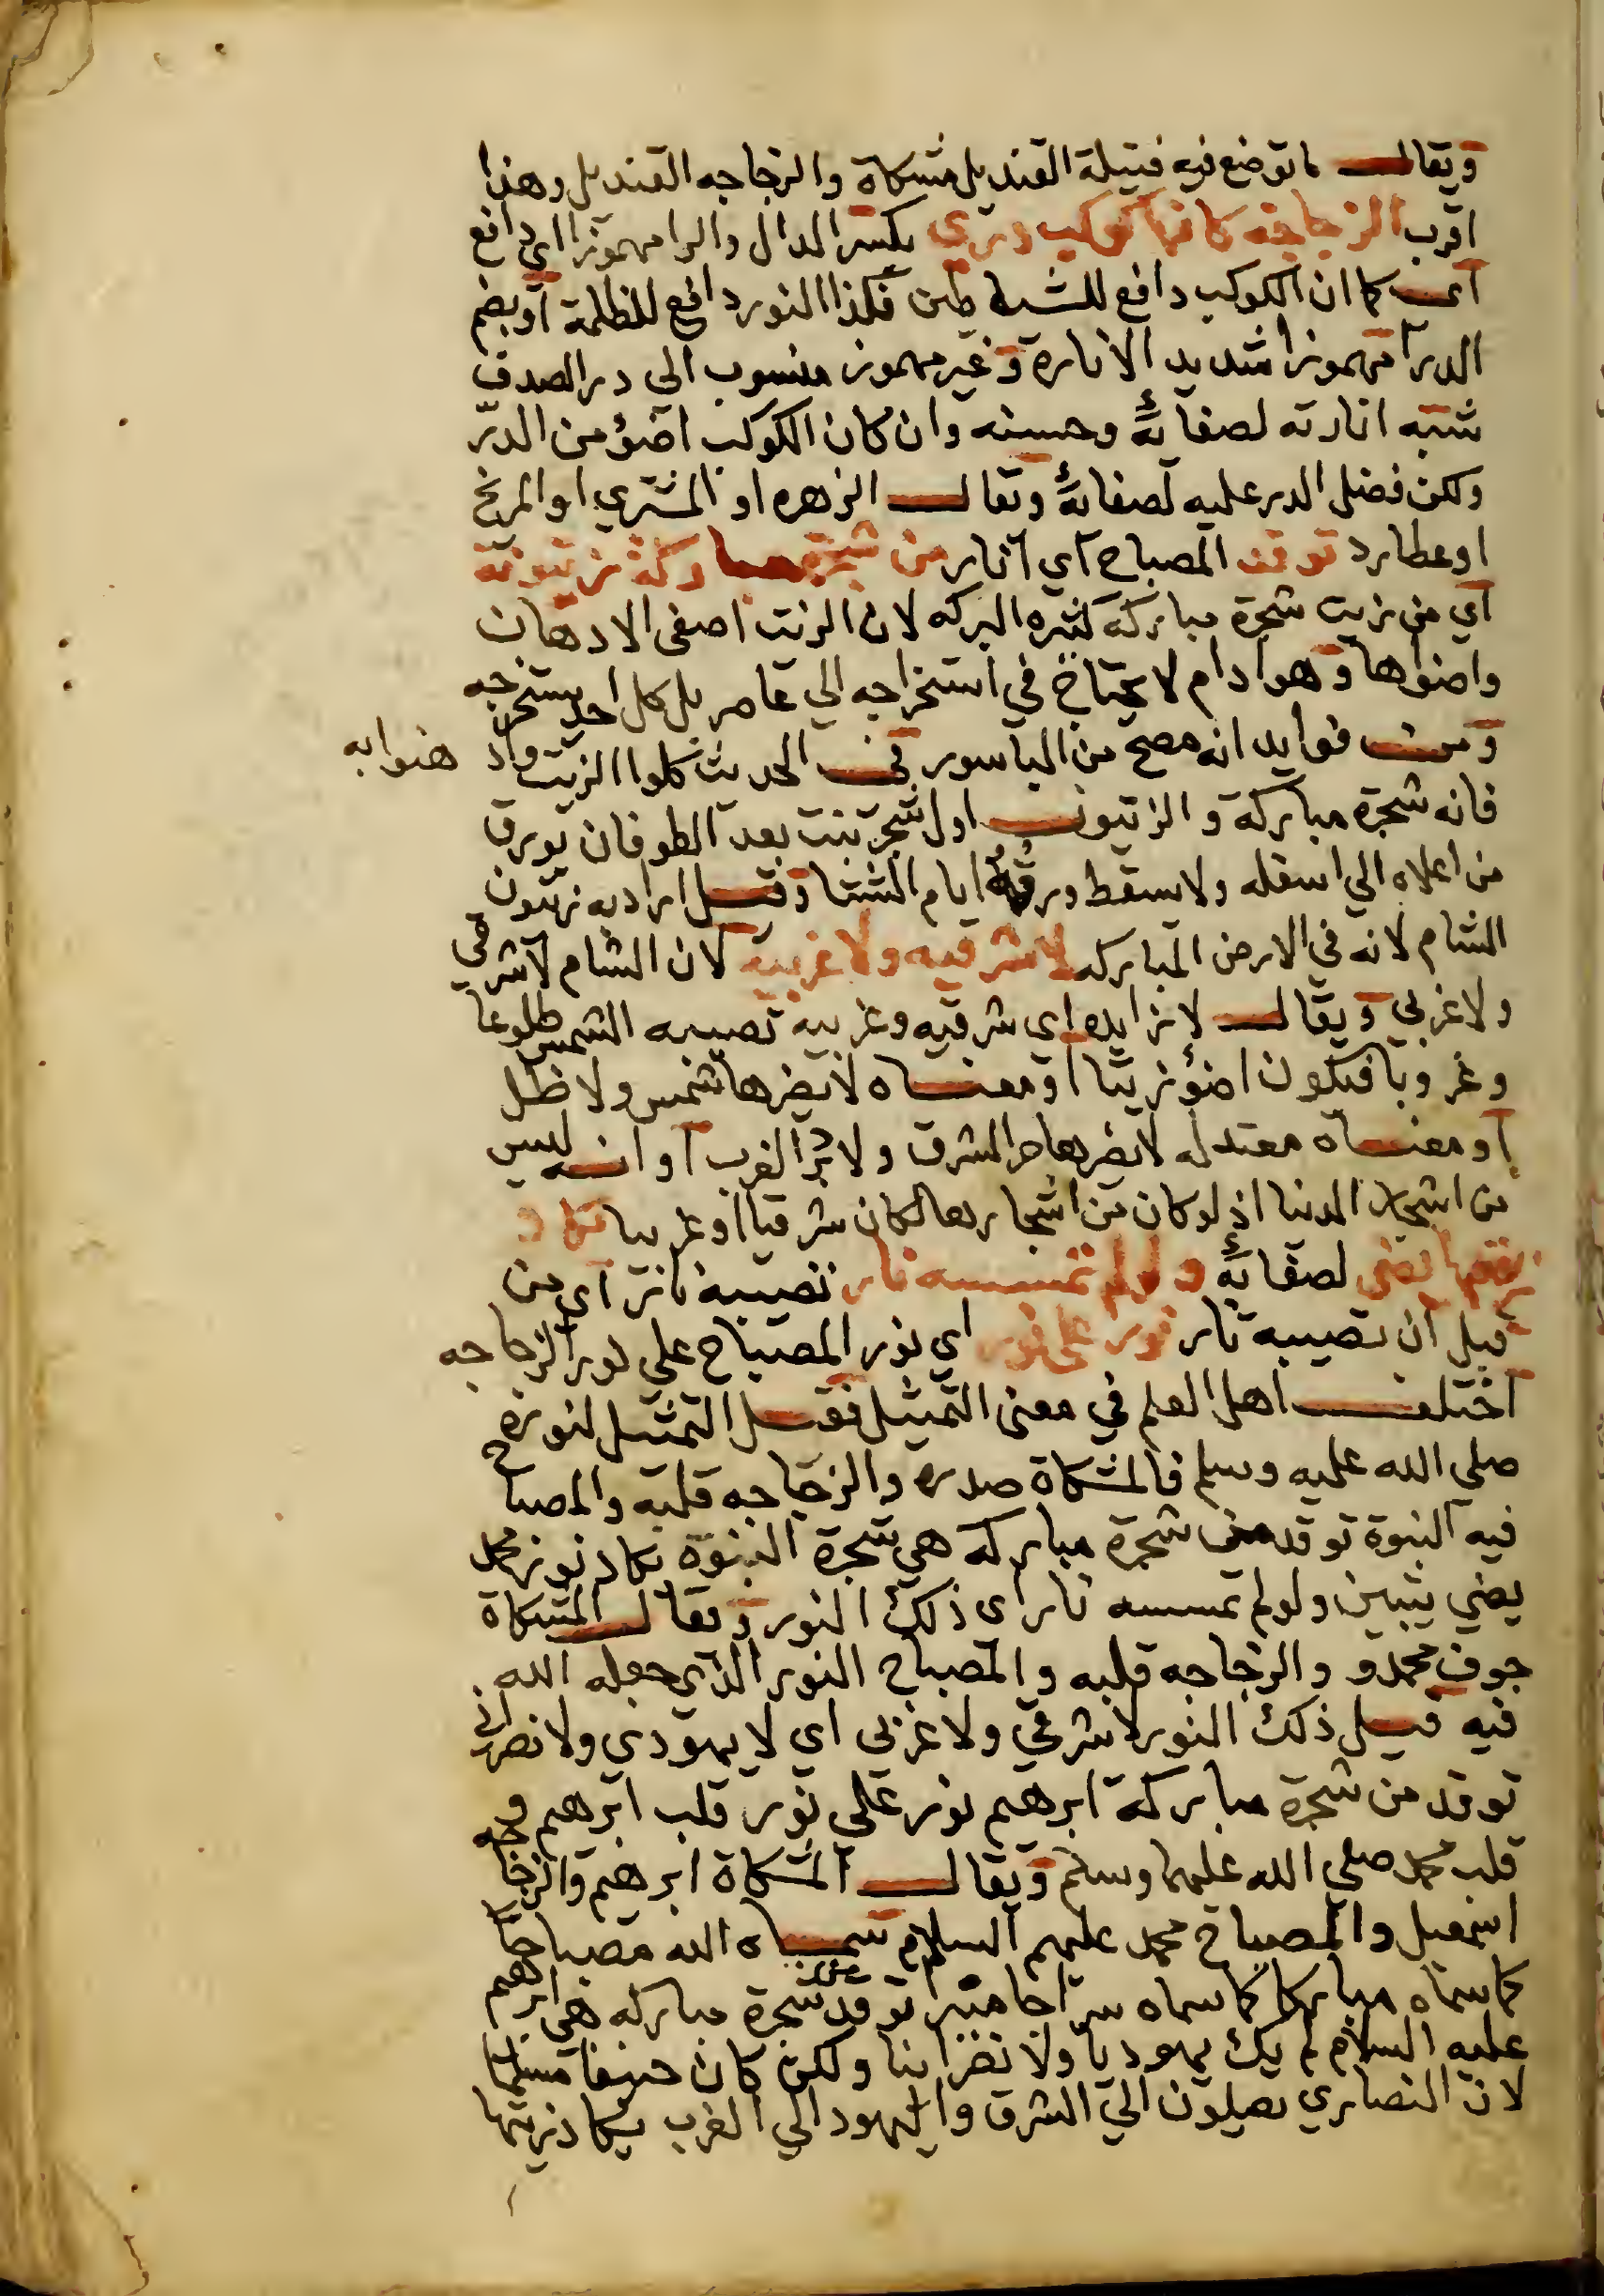 ويقال ما توضع فيه فتيلة القنديل مشكاة والزجاجه القنديل وهذا
اقرب الزجاجة كانها كوكب دري بكسر الدال والرا مهموزا اي دافع
اي كما ان الكوكب دافع للشياطين فكذا النور دافع للظلمة او بضم
الدرا مهموزا شديد الانارة وغير مهموز منسوب الي در الصدف
شبه انارته لصفائه وحسنه وان كان الكوكب اضؤ من الدرّ
ولكن فضل الدر عليه لصفائه ويقال الزهره او المشتري او المريخ
او عطارد توقد المصباح اي انار من شجرة مباركة زيتونة
اي من زيت شجرة مباركة كثيره البركه لان الزيت اصفى الادهان
واضواها وهو ادام لا يحتاج في استخراجه الي عاصر بل كل احد يستخرجه
ومن فوايد انه مصح من الباسور في الحديث كلوا الزيت واد هنوا به
فانه شجرة مباركة والزيتون اول شجر نبت بعد الطوفان تورق
من اعلاه الي اسفله ولا يسقط ورقه ايام الشتا وقيل اراد به زيتون
الشام لانه في الارض المباركه لا شرقيه ولا غربية لان الشام لا شرقي
ولا غربي ويقال لا زايده اي شرقيه وغربيه تصيبه الشمس طلوعا
وغروبا فيكون اضؤ زيتا او معناه لا يضرها شمس ولا ظل
او معناه معتدله لا يضرها حر المشرق ولا برد الغرب او انه ليس
من اشجار الدنيا اذ لو كان من اشجارها لكان شرقيا او غربيا يكاد
زيتها يضي لصفائه ولو لم تمسسه نار تصيبه نار اي من
قبل ان تصيبه نار نور على نور اي نور المصباح علي نور الزجاجه
اختلف اهل العلم في معنى التمثيل فقيل التمثيل لنوره
صلي الله عليه وسلم فالمشكاة صدره والزجاجه قلبه والمصباح
فيه النبوة توقد من شجرة مباركه هي شجرة النبوة يكاد نور محمد
يضي يتبين ولو لم تمسسه نار اي ذلك النور ويقال المشكاة
جوف محمد و والزجاجه قلبه والمصباح النور الذي جعله الله
فيه قيل ذلك النور لا شرقي ولا غربي اي لا يهودي ولا نصراني
توقد من شجرة مباركة ابرهيم نور علي نور قلب ابرهيم و
قلب محمد صلي الله عليهما وسلم ويقال المشكاة ابرهيم والزجاجه
اسمعيل والمصباح محمد عليهم السلام سماه الله مصباحا
كما سماه مباركا كما سماه سراجا منيرا توقد من شجرة مباركه هي ابرهيم
عليه السلام لم يك يهوديا ولا نصرانيا ولكن كان حنيفا مسلما
لان النصاري يصلون الي الشرق واليهود الي الغرب يكاد زيتها